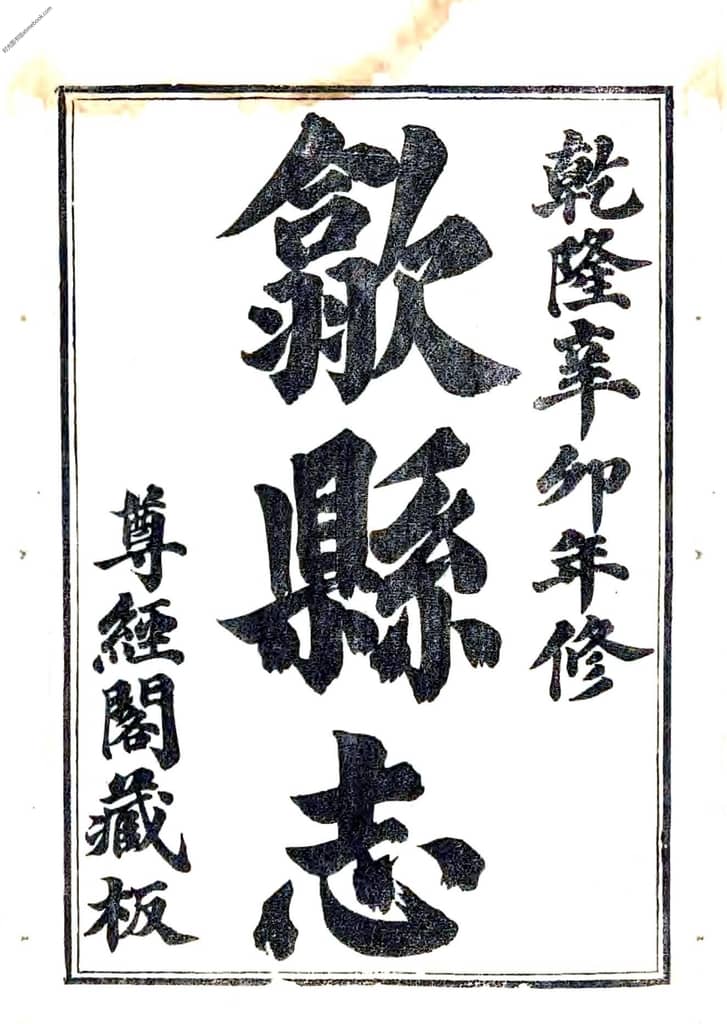 乾隆辛卯年修
歙縣志
尊經閣藏板